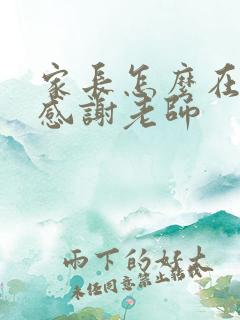 家長怎麼在
感謝老師
雨下的好大
未經同意禁止轉載